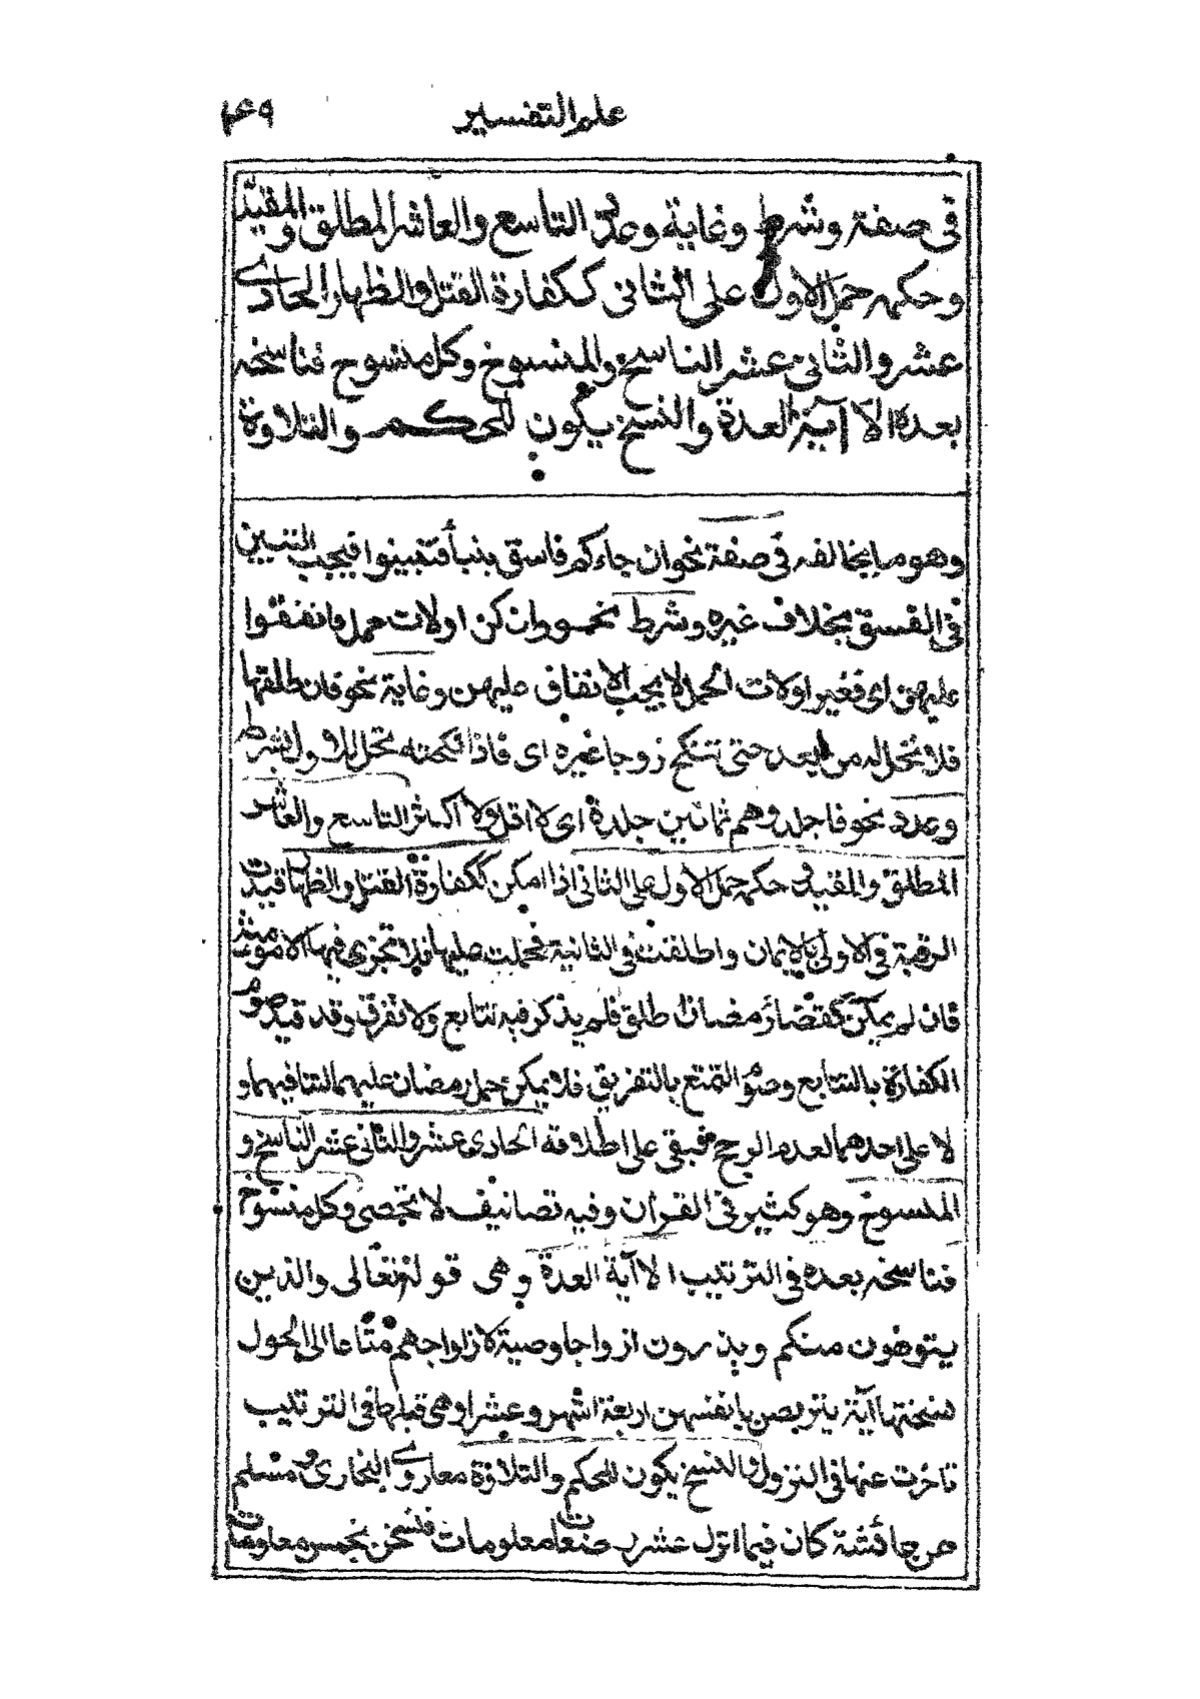 علم التفسير ۴۹
في صفة وشرط وغاية وعدد التاسع والعاشر المطلق والمقيد
وحكمه حمل الاول على الثاني ككفارة القتل والظهار الحادي
عشر والثاني عشر الناسخ والمنسوخ وكل منسوخ فناسخه
بعده الا آية العدة والنسخ يكون للحكم والتلاوة
وهو ما يخالفه في صفة نحو ان جاءكم فاسق بنبأ فتبينوا فيجب التبين
في الفسق بخلاف غيره وشرط نحو وان كن اولات حمل فانفقوا
عليهن اى فغير اولات الحمل لا يجب الانفاق عليهن وغاية نحو فان طلقها
فلا تحل له من بعد حتى تنكح زوجا غيره اى فاذا نكحته تحل للاول بشرطه
وعدد نحو فاجلدوهم ثمانين جلدة اى لا اقل ولا اكثر التاسع والعاشر
المطلق والمقيد وحكمه حمل الاول على الثاني اذا امكن ككفارة القتل والظهار قيدت
الرقبة في الاولى بالايمان واطلقت في الثانية فحملت عليها فلا تجزى فيها الا مومنة
فان لم يمكن كقضاء رمضان اطلق فلم يذكر فيه تتابع ولا تفرق وقد قيد صوم
الكفارة بالتتابع وصوم التمتع بالتفريق فلا يمكن حمل رمضان عليهما لتنافيهما و
لا على احدهما لعدم المرجح فبقي على اطلاقه الحادى عشر والثاني عشر الناسخ و
المنسوخ وهو كثير في القرآن وفيه تصانيف لا تحصى وكل منسوخ
فناسخه بعده في الترتيب الا آية العدة وهى قوله تعالى والذين
يتوفون منكم ويذرون ازواجا وصية لازواجهم متاعا الى الحول
نسختها آية يتربصن بانفسهن اربعة اشهر وعشرا وهى قبلها في الترتيب
تاخرت عنها في النزول والنسخ يكون للحكم والتلاوة معا روى البخارى ومسلم
عن عائشة كان فيما انزل عشر رضعات معلومات فنسخن بخمس معلومات